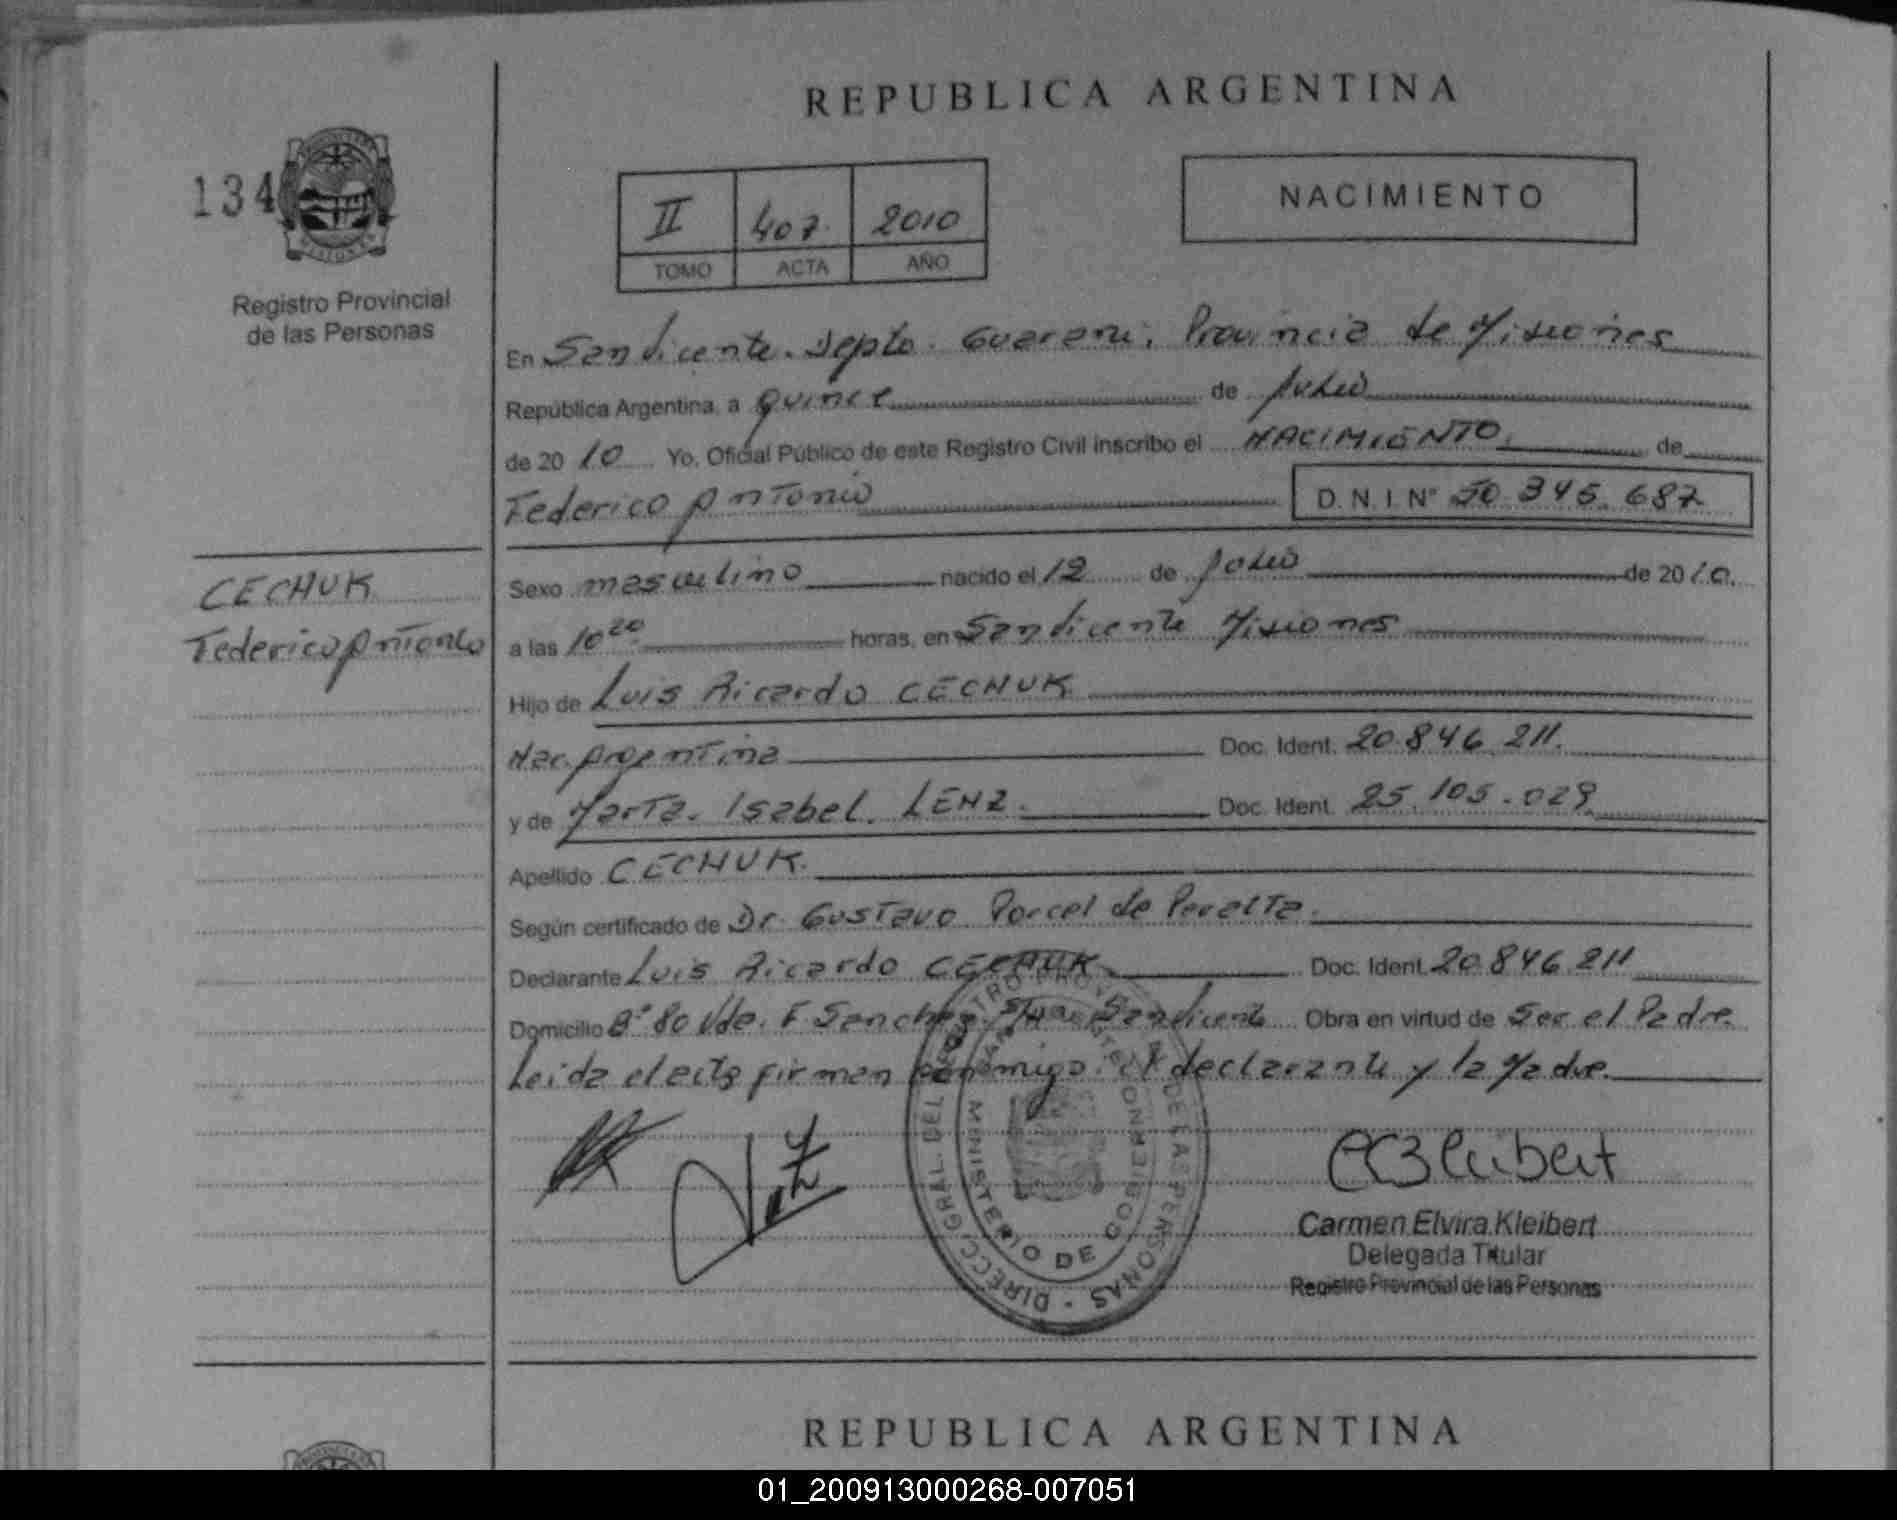 REPUBLICA ARGENTINA
134
NACIMIENTO
II 407 2010
TOMO ACTA AÑO
Registro Provincial
de las Personas
En San Vicente. Depto. Guarani. Provincia de Misiones
República Argentina, a quince de Julio
de 2010 Yo, Oficial Público de este Registro Civil inscribo el NACIMIENTO. de
Federico Antonio D.N.I. N° 50.345.687
CECHUK
Federico Antonio
Sexo masculino nacido el 12 de Julio de 2010.
a las 10 20 horas, en San Vicente Misiones
Hijo de Luis Ricardo CECHUK
Nac. Argentina Doc. Ident. 20.846.211.
y de Marta. Isabel. LENZ. Doc. Ident. 25.105.029
Apellido CECHUK.
Según certificado de Dr. Gustavo Porcel de Peralta.
Declarante Luis Ricardo CECHUK Doc. Ident. 20.846.211
Domicilio B° 80 Vde. F Sanchez San Vicente Obra en virtud de Ser el Padre
Leida el acta firman conmigo. el declarante y la Madre.
DIRECC. GRAL. DEL REGISTRO PROVINCIAL DE LAS PERSONAS
MINISTERIO DE GOBIERNO
Carmen Elvira Kleibert
Delegada Titular
Registro Provincial de las Personas
REPUBLICA ARGENTINA
01_200913000268-007051